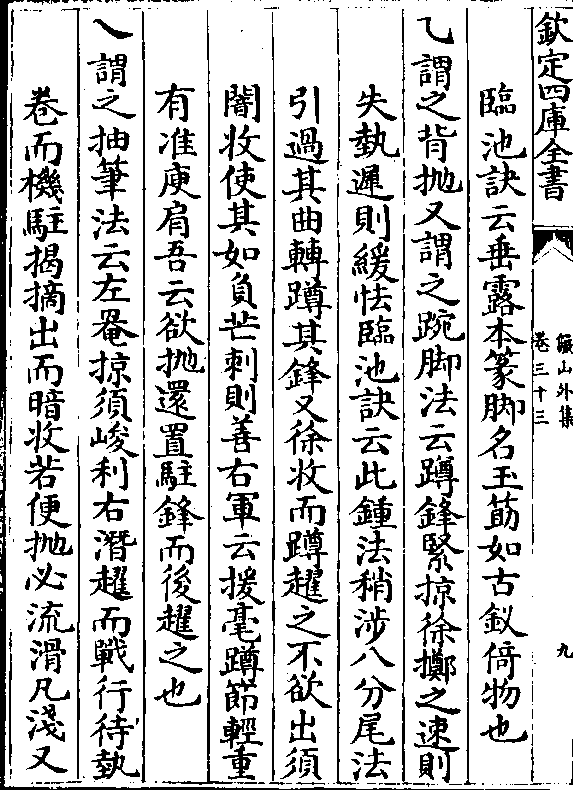 欽定四庫全書
巖山外集
卷三十三
九
臨池訣云垂露本篆脚名玉筯如古釵倚物也
乁謂之背抛又謂之踠脚法云蹲鋒緊掠徐擲之速則
失執遲則緩怯臨池訣云此鍾法稍涉八分尾法
引過其曲轉蹲其鋒又徐收而蹲趯之不欲出須
闇收使其如負芒刺則善右軍云援毫蹲節輕重
有准庾肩吾云欲抛還置駐鋒而後趯之也
乀謂之抽筆法云左罨掠須峻利右潛趯而戰行待執
卷而機駐揭摘出而暗收若便抛必流滑凡淺又